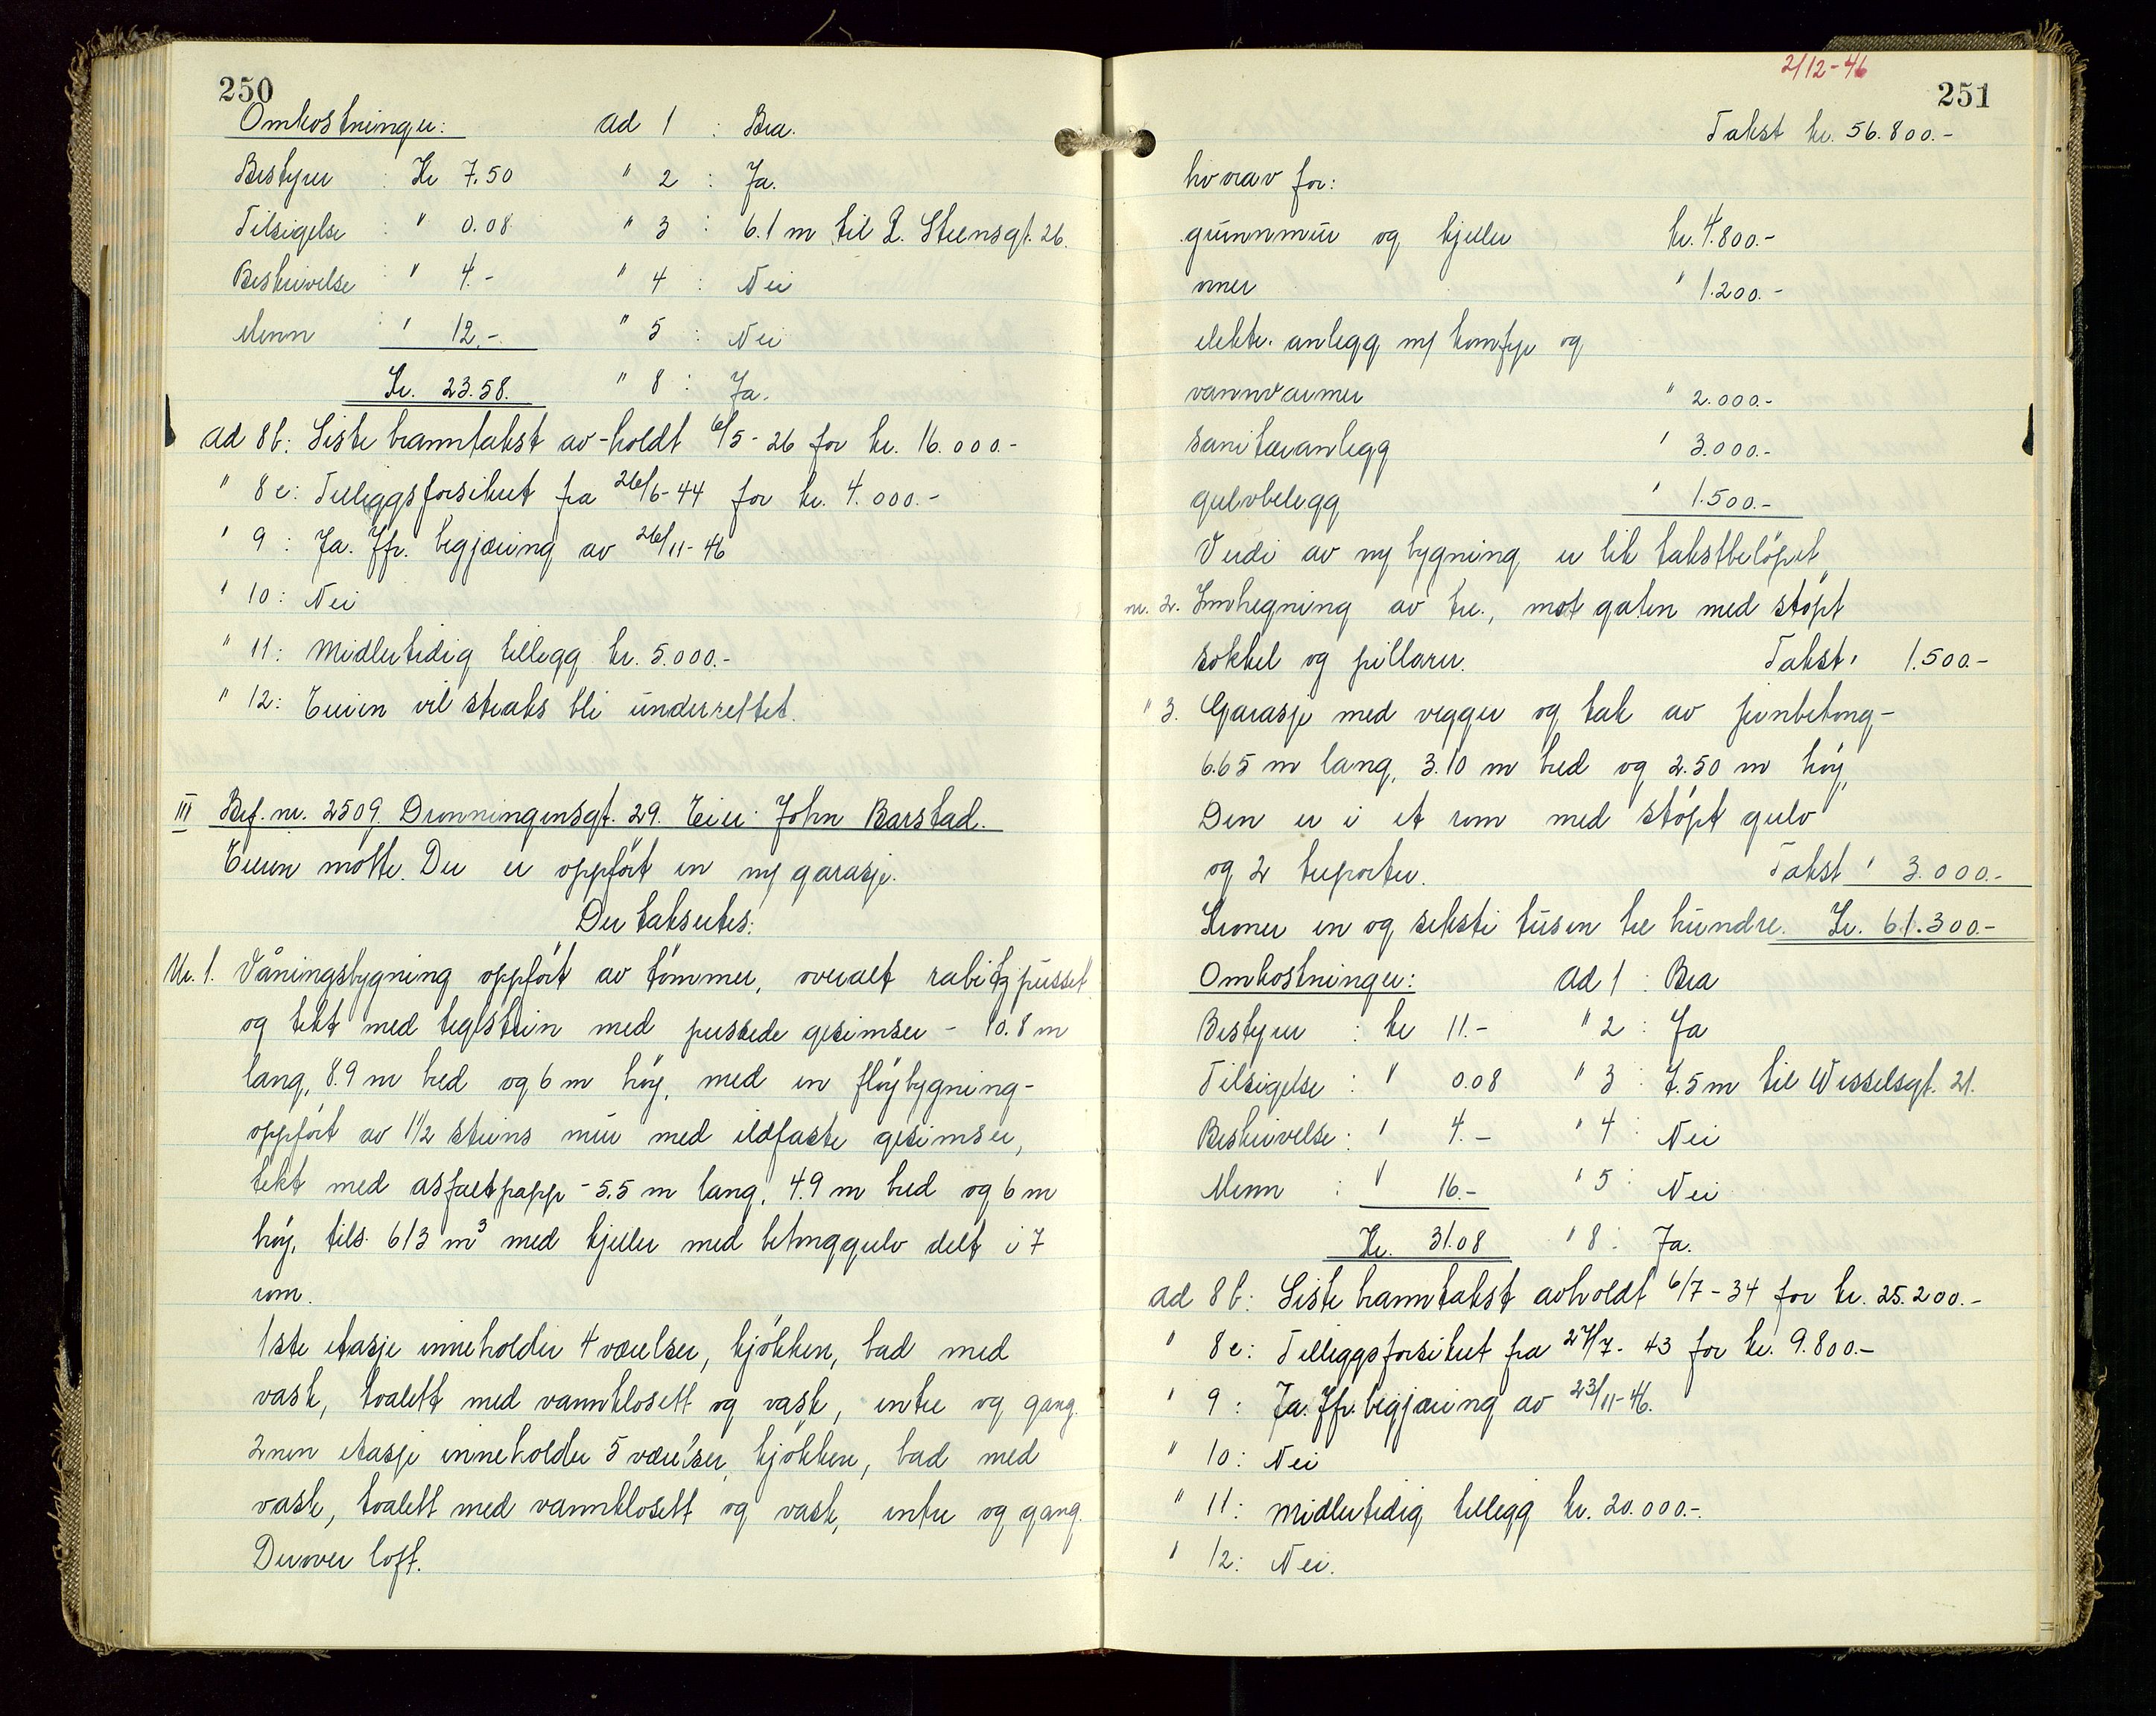 250
Omkostninger: ad 1 : Bra.
Bestyrer : Kr 7.50 " 2 : Ja.
Tilsigelse : " 0.08 " 3 : 6.1 m til L. Steensgt. 26.
Beskrivelse : " 4.- " 4 : Nei
Menn : " 12.- " 5 : Nei
Kr. 23.58. " 8 : Ja.
ad 8b: Siste branntakst av-holdt 6/5-26 for kr. 16.000.-
" 8c: Tilleggsforsikret fra 26/6-44 for kr. 4.000.-
" 9 : Ja. Jfr. begjæring av 26/11-46
" 10: Nei
" 11: Midlertidig tillegg kr. 5.000.-
" 12: Eieren vil straks bli underrettet.
III Brf. nr. 2509. Dronningensgt. 29. Eier: John Barstad.
Eieren møtte. Der er oppført en ny garasje.
Der taksertes:
Nr. 1. Våningsbygning oppført av tømmer, overalt rabitzpusset
og tekt med teglstein med pussede gesimser - 10.8 m
lang, 8.9 m bred og 6 m høy, med en fløybygning-
oppført av 1 1/2 steins mur med ildfaste gesimser,
tekt med asfaltpapp - 5.5 m lang, 4.9 m bred og 6 m
høy, tils. 613 m³ med kjeller med betonggulv delt i 7
rom.
1ste etasje inneholder 4 værelser, kjøkken, bad med
vask, toalett med vannklosett og vask, entre og gang.
2nen etasje inneholder 5 værelser, kjøkken, bad med
vask, toalett med vannklosett og vask, entre og gang.
Derover loft.
2/12-46
251
Takst kr. 56.800.-
hvorav for:
grunnmur og kjeller kr. 4.800.-
ovner " 1.200.-
elektr. anlegg m/ komfyr og
vannvarmer " 2.000.-
sanitæranlegg " 3.000.-
gulvbelegg " 1.500.-
Verdi av ny bygning er lik takstbeløpet.
nr. 2. Innhegning av tre, mot gaten med støpt
sokkel og pillarer. Takst " 1.500.-
" 3. Garasje med vegger og tak av jernbetong-
6.65 m lang, 3.10 m bred og 2.50 m høy,
Den er i et rom med støpt gulv
og 2 treporter. Takst " 3.000.-
Kroner en og seksti tusen tre hundre. Kr. 61.300.-
Omkostninger: ad 1 : Bra
Bestyrer : kr 11.- " 2 : Ja
Tilsigelse : " 0.08 " 3 : 7.5 m til Wesselsgt. 21.
Beskrivelse : " 4.- " 4 : Nei
Menn : " 16.- " 5 : Nei
Kr. 31.08 " 8 : Ja.
ad 8b: Siste branntakst avholdt 6/7-34 for kr. 25.200.-
" 8c: Tilleggsforsikret fra 27/7-43 for kr. 9.800.-
" 9 : Ja. Jfr. begjæring av 23/11-46.
" 10: Nei
" 11: Midlertidig tillegg kr. 20.000.-
" 12: Nei.